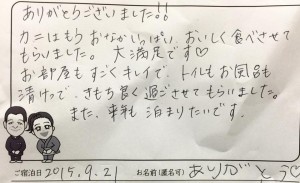 ありがとうございました!!
カニはもうおなかいっぱい、おいしく食べさせて
もらいました。大満足です♡
お部屋もすごくキレイで、トイレもお風呂も
清けつで、きもち良く過ごさせてもらいました。
また、来年も泊まりたいです。
ご宿泊日 2015.9.21 お名前(匿名可) ありがとう♡